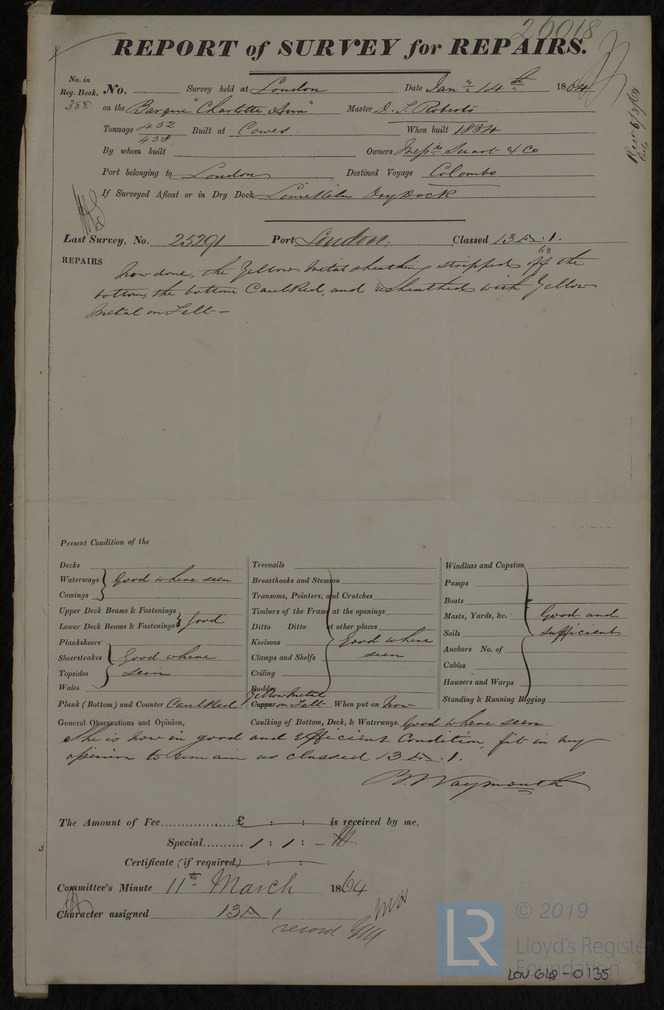 20018
REPORT of SURVEY for REPAIRS.
No. in Reg. Book. No. Survey held at London Date Jany. 14th 1864
388 on the Barque "Charlotte Ann" Master D. S. Roberts
Tonnage 452 / 458 Built at Cowes When built 1834
By whom built Owners Messrs Stuart & Co
Port belonging to London Destined Voyage Colombo
If Surveyed Afloat or in Dry Dock Limekiln Dry Dock
Last Survey, No. 25291 Port London. Classed 13 Æ. 1.
63
REPAIRS now done, the Yellow Metal sheathing stripped off the
bottom, the bottom Caulked, and sheathed with Yellow
Metal on Felt —
Present Condition of the
Decks
Waterways Good where seen
Comings
Upper Deck Beams & Fastenings
Lower Deck Beams & Fastenings Good
Planksheers
Sheerstrakes Good where
Topsides seen
Wales
Plank (Bottom) and Counter Caulked
Treenails
Breasthooks and Stemson
Transoms, Pointers, and Crutches
Timbers of the Frame at the openings
Ditto Ditto at other places
Keelsons Good where
Clamps and Shelfs seen
Ceiling
Rudder
Yellow Metal
Copper on Felt When put on Now
Windlass and Capstan
Pumps
Boats
Masts, Yards, &c. Good and
Sails sufficient
Anchors No. of
Cables
Hawsers and Warps
Standing & Running Rigging
General Observations and Opinion, Caulking of Bottom, Deck, & Waterways. Good where seen
She is now in good and Efficient Condition, fit in my
opinion to remain as classed 13 Æ. 1.
B. Waymouth
The Amount of Fee £ : : is received by me,
Special 1 : 1 : —
Certificate (if required) : :
Committee's Minute 11th March 1864
Character assigned 13 Æ 1
record
LR
© 2019
Lloyd's Register
Foundation
LON GLR-0135